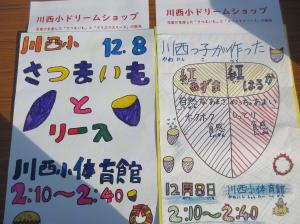 川西小ドリームショップ
川西小 12.8
さつまいも
と
リース
川西小体育館
2:10～2:40
川西小ドリームショップ
川西っ子が作った
かわにし
紅あずま
紅はるか
自然なあまさ
ホクホク
食感
あまい
しっとり
食感
12月8日
川西小体育館
2:10～2:40